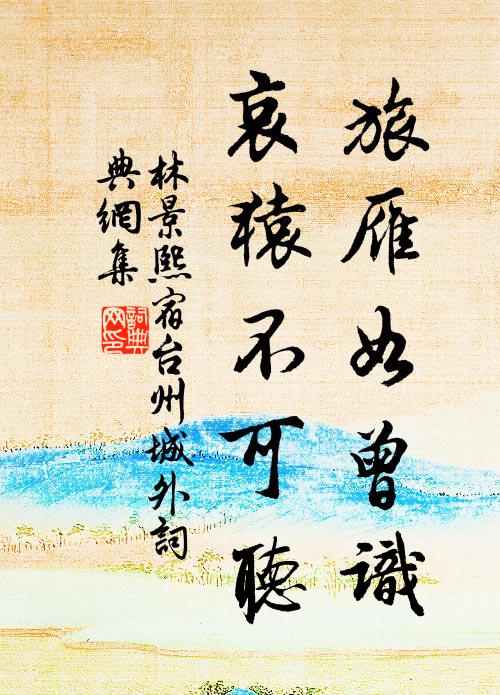 旅雁如曾識
哀猿不可聽
林景熙宿台州城外詞
典網集
詞典
网印